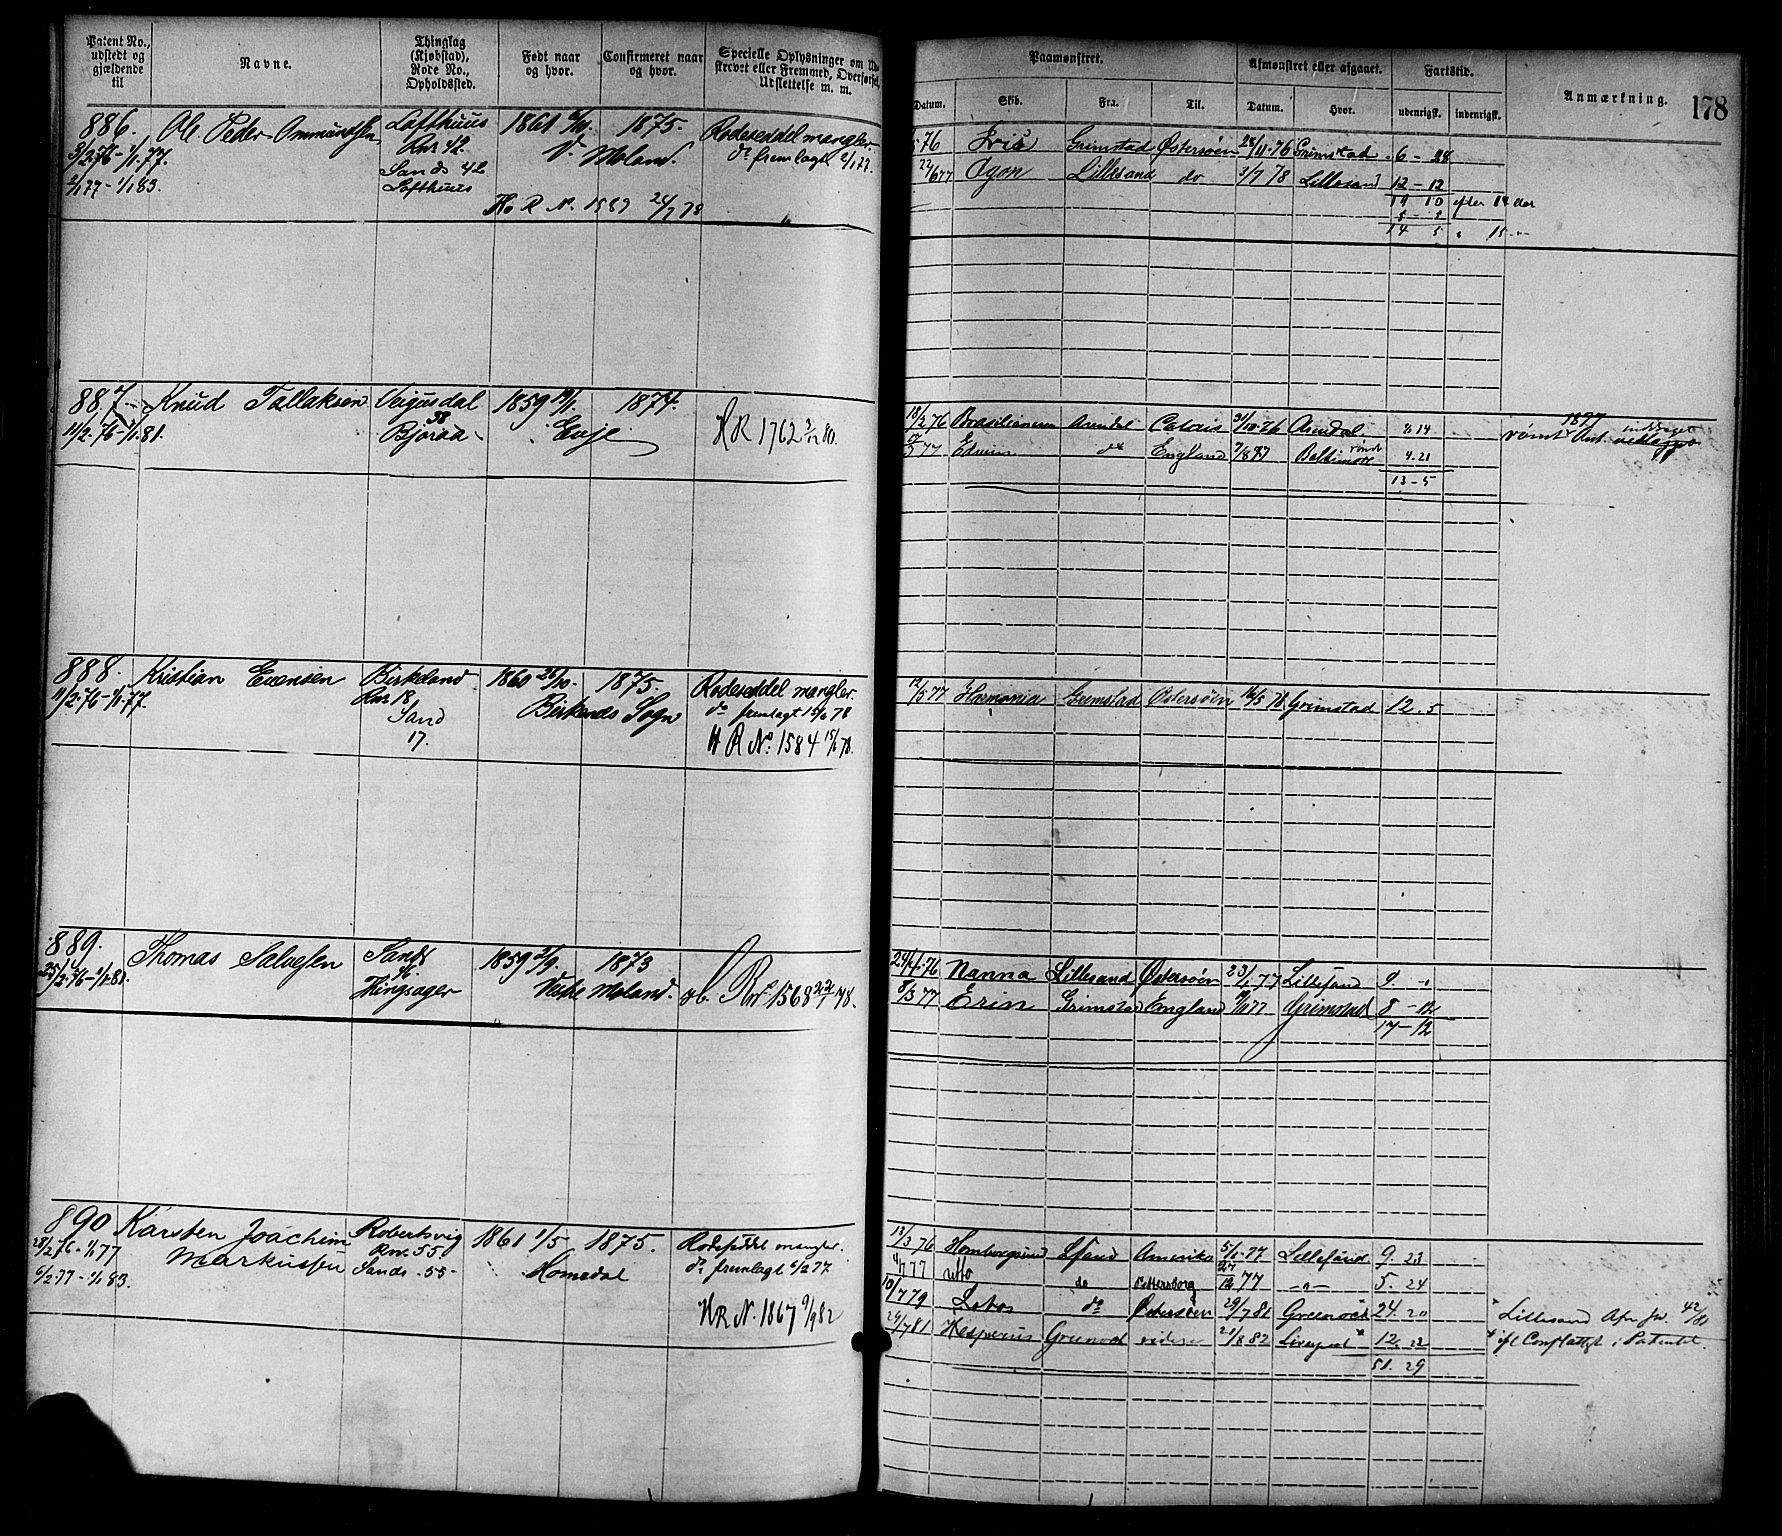 Patent No., udstedt og gjældende til
Navne.
Thinglag (Kjøbstad), Rode No., Opholdssted.
Født naar og hvor.
Confirmeret naar og hvor.
Specielle Oplysninger om Ud-
skrevet eller Fremmed, Overførsel,
Udslettelse m. m.
Paamønstret.
Datum. Skib. Fra. Til.
Afmønstret eller afgaaet.
Datum. Hvor.
Fartstid.
udenrigsk. indenrigsk.
Anmærkning.
178
886. Ole Peder Ommundsen Lofthuus 1861 1875. Rodeseddel mangler.
3/2 76 - 1/1 77. Rnr 42. V. Moland. do fremlagt 2/1 77.
2/1 77 - 1/1 83. Sands 42
Lofthuus
H o R N. 1589 24/7 78
76 Iris Grimstad Østersøen 28/11 76 Grimstad 6 - 28
22/6 77 Ogon Lillesand do 3/7 78 Lillesand 12 - 12
19 10 efter 14 dar
14 5 " 15 "
887 Knud Tallaksen Veigusdal 1859 19/1. 1874.
11/2 76 - 1/1 81. 38 Bjoraa Evje H R 1762 2/12 80.
18/2 76 Brasilianeren Arendal Calais 31/10 76 Arendal. 8 14
77 Edwin do England 7/8 77 Baltimore rømt 4. 21
13 - 5
1877
rømt Pat. inddraget
888. Kristian Evensen Birkeland 1860 26/10. 1875. Rodeseddel mangler.
11/2 76 - 1/1 77. Rnr 18 Birkenes Sogn do fremlagt 14/6 78
Sand
17. H R No. 1584 15/6 78.
12/5 77 Harmonia Grimstad Østersøen 16/5 78 Grimstad 12. 5
889. Thomas Salvesen Sands 1859 2/9. 1873
25/2 76 - 1/1 81. 46 Høingsager Vestre Moland. ob. R No 1568 22/1 78.
24/4 76 Nanna Lillesand Østersøen 23/1 77 Lillesand 9 -
8/3 77 Erin Grimstad England 77 Grimstad 8 - 12
17 - 12
890 Karsten Joachim Robertsvig 1861 1/5 1875. Rodeseddel mangler.
28/2 76 - 1/1 77 Markussen Rnr. 55. Homedal do fremlagt 6/2 77
6/2 77 - 1/1 83. Sands - 55 -
HR N. 1867 9/9 82
12/3 76 Homborgsund Lsand Amerika 5/1 77 Lillesand 9. 23
4/7 77 ditto do Petersborg 77 - " - 5. 24
10/7 79 Lobos do Østersøen 29/7 81 Greenock 24. 20
29/7 81 Hesperus Greenock videre 21/8 82 Liverpool * 12. 22
51. 29
* Lillesand